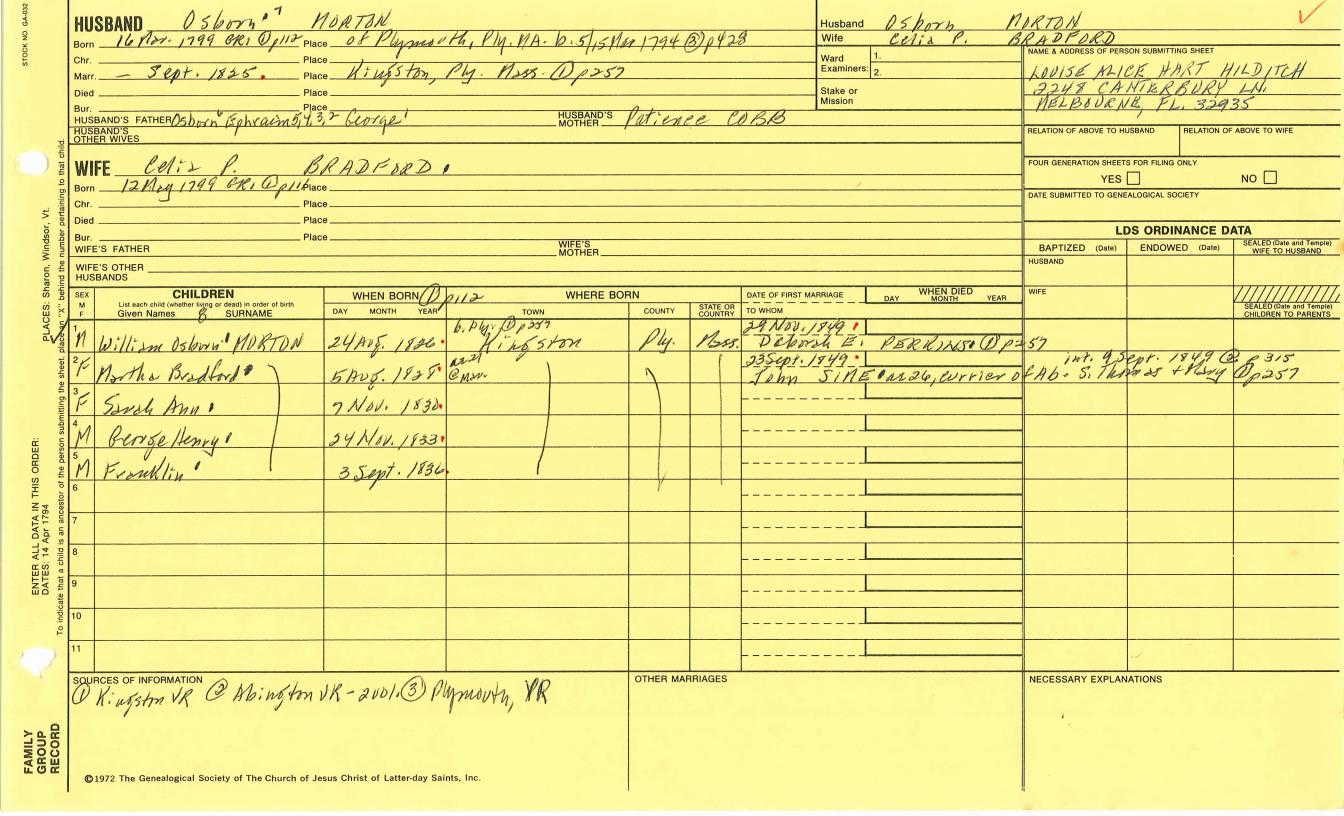 STOCK NO. GA-032
HUSBAND Osborn⁷ MORTON
Born 16 Mar. 1799 GR1 ① p112 Place of Plymouth, Ply. MA. b. 5/15 Mar 1794 ③ p428
Chr. Place
Marr. — Sept. 1825. Place Kingston, Ply. Mass. ① p257
Died Place
Bur. Place
HUSBAND'S FATHER Osborn⁶ Ephraim 5,4,3,2 George¹ HUSBAND'S MOTHER Patience COBB
HUSBAND'S OTHER WIVES
Husband Osborn MORTON
Wife Celia P. BRADFORD
Ward Examiners: 1.
2.
Stake or Mission
NAME & ADDRESS OF PERSON SUBMITTING SHEET
LOUISE ALICE HART HILDITCH
2248 CANTERBURY LN.
MELBOURNE, FL. 32935
RELATION OF ABOVE TO HUSBAND RELATION OF ABOVE TO WIFE
FOUR GENERATION SHEETS FOR FILING ONLY
YES NO
DATE SUBMITTED TO GENEALOGICAL SOCIETY
WIFE Celia P. BRADFORD
Born 12 May 1799 GR1 ① p116 Place
Chr. Place
Died Place
Bur. Place
WIFE'S FATHER WIFE'S MOTHER
WIFE'S OTHER HUSBANDS
LDS ORDINANCE DATA
BAPTIZED (Date) ENDOWED (Date) SEALED (Date and Temple) WIFE TO HUSBAND
HUSBAND
WIFE
SEALED (Date and Temple) CHILDREN TO PARENTS
SEX M F
CHILDREN
List each child (whether living or dead) in order of birth
Given Names SURNAME
WHEN BORN ① p112
DAY MONTH YEAR
WHERE BORN
TOWN COUNTY STATE OR COUNTRY
DATE OF FIRST MARRIAGE
TO WHOM
WHEN DIED
DAY MONTH YEAR
b. Ply. ① p257 29 Nov. 1849
1 M William Osborn MORTON 24 Aug. 1826 Kingston Ply. Mass. Deborah E. PERKINS. ① p257
23 Sept. 1849 int. 9 Sept. 1849 ② p315
2 F Martha Bradford 5 Aug. 1828 @ mar. John SIME ae 26, currier of Ab. S. Thomas + Mary ① p257
3 F Sarah Ann 7 Nov. 1830
4 M George Henry 24 Nov. 1833
5 M Franklin 3 Sept. 1836
6
7
8
9
10
11
SOURCES OF INFORMATION
① Kingston VR ② Abington VR - 2001. ③ Plymouth, VR
OTHER MARRIAGES
NECESSARY EXPLANATIONS
©1972 The Genealogical Society of The Church of Jesus Christ of Latter-day Saints, Inc.
FAMILY GROUP RECORD
ENTER ALL DATA IN THIS ORDER:
DATES: 14 Apr 1794
PLACES: Sharon, Windsor, Vt.
To indicate that a child is an ancestor of the person submitting the sheet, place an "X" behind the number pertaining to that child.